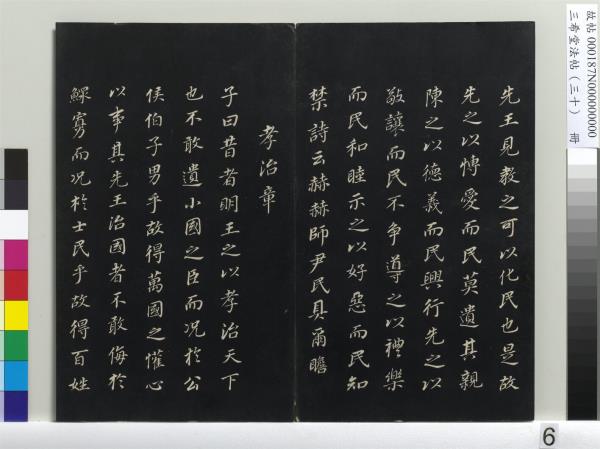 故帖 000187N000000000
三希堂法帖（三十） 冊
先王見教之可以化民也是故
先之以博愛而民莫遺其親
陳之以德義而民興行先之以
敬讓而民不爭導之以禮樂
而民和睦示之以好惡而民知
禁詩云赫赫師尹民具爾瞻
孝治章
子曰昔者明王之以孝治天下
也不敢遺小國之臣而況於公
侯伯子男乎故得萬國之懽心
以事其先王治國者不敢侮於
鰥寡而況於士民乎故得百姓
6